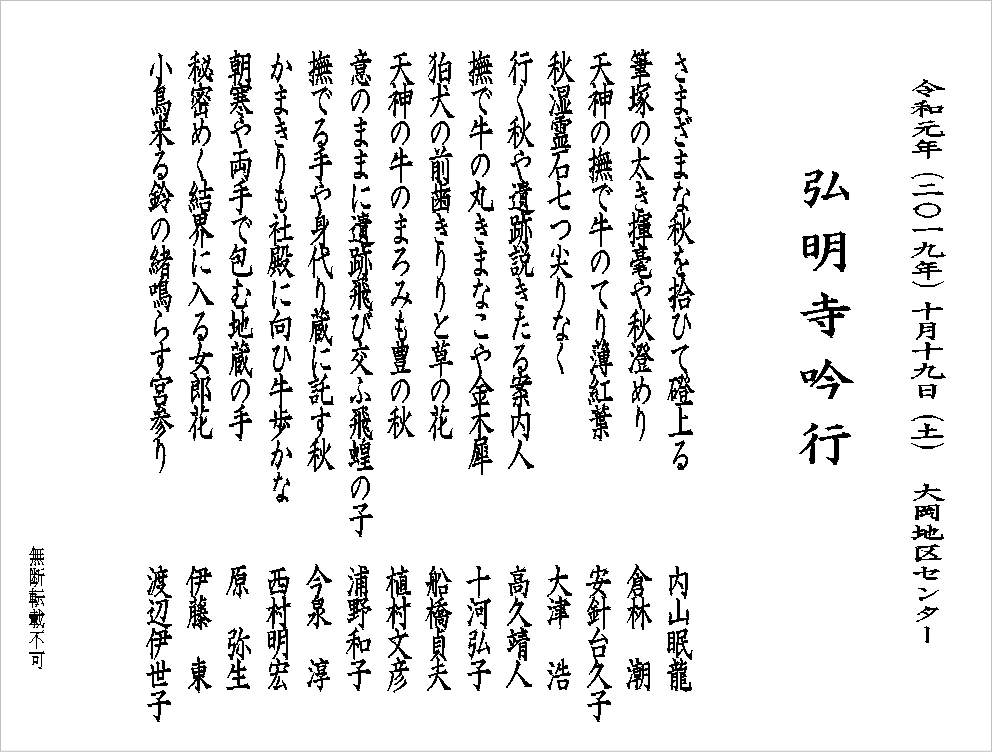 令和元年（二〇一九年）十月十九日（土）　大岡地区センター
弘明寺吟行
さまざまな秋を拾ひて磴上る　内山眠龍
筆塚の太き揮毫や秋澄めり　倉林　潮
天神の撫で牛のてり薄紅葉　安針台久子
秋湿霊石七つ尖りなく　大津　浩
行く秋や遺跡説きたる案内人　高久靖人
撫で牛の丸きまなこや金木犀　十河弘子
狛犬の前歯きりりと草の花　船橋貞夫
天神の牛のまろみも豊の秋　植村文彦
意のままに遺跡飛び交ふ飛蝗の子　浦野和子
撫でる手や身代り蔵に託す秋　今泉　淳
かまきりも社殿に向ひ牛歩かな　西村明宏
朝寒や両手で包む地蔵の手　原　弥生
秘密めく結界に入る女郎花　伊藤　東
小鳥来る鈴の緒鳴らす宮参り　渡辺伊世子
無断転載不可